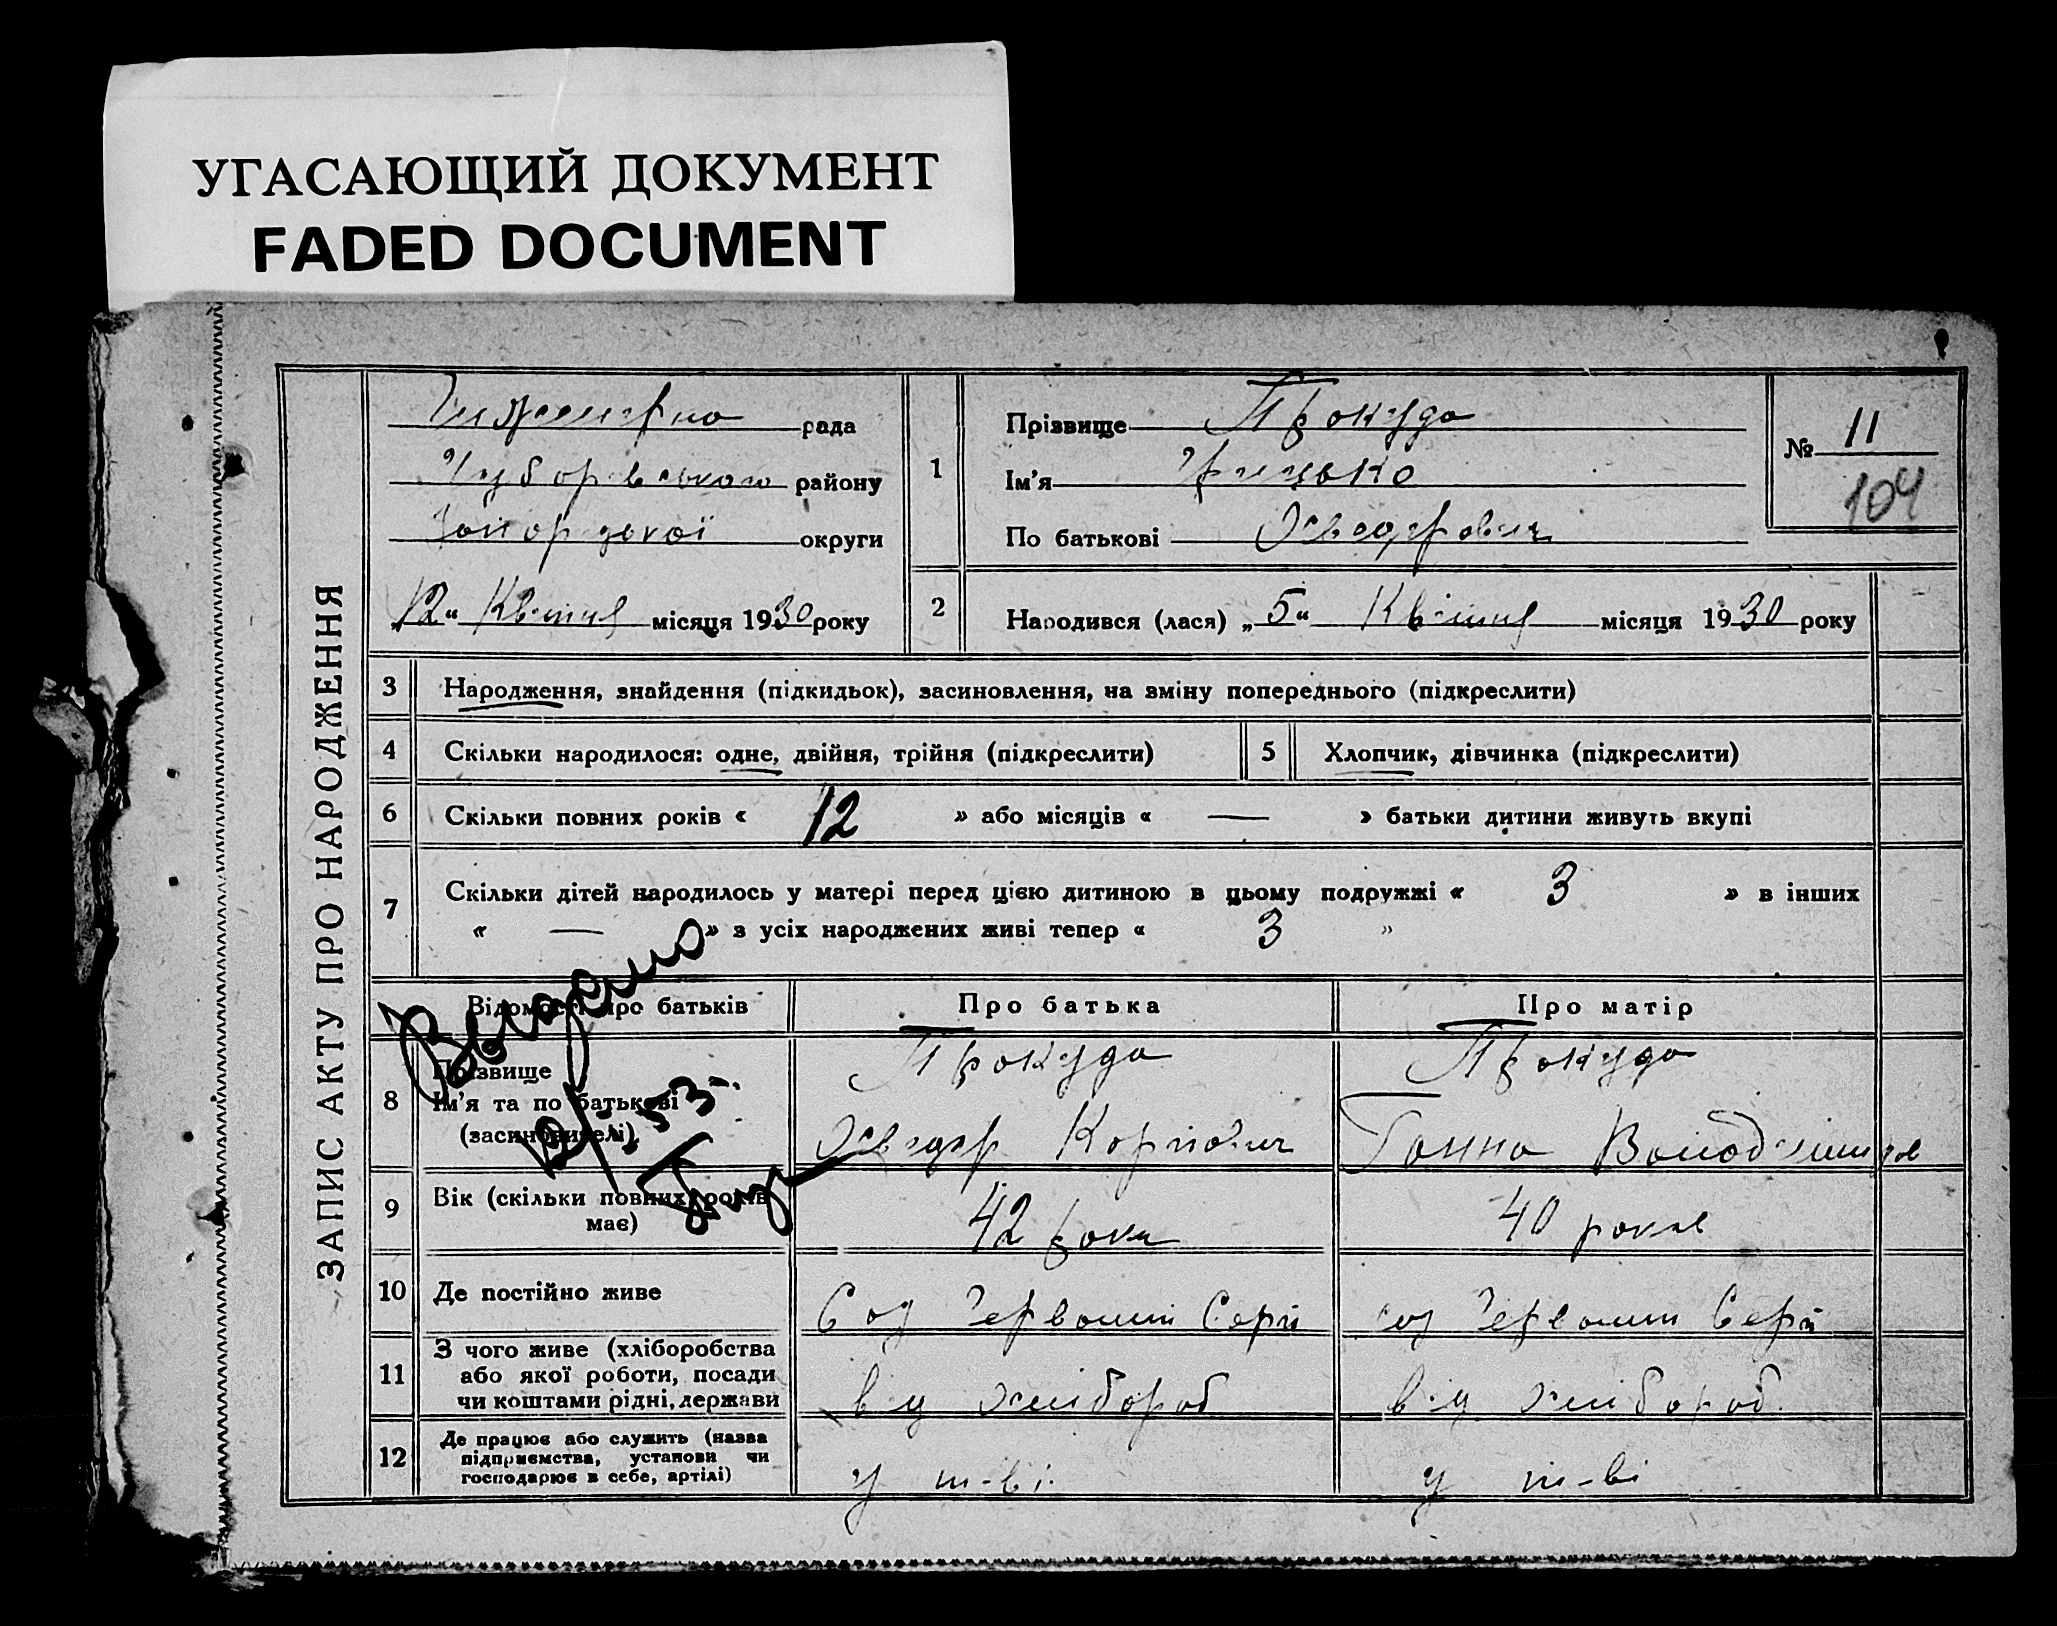 УГАСАЮЩИЙ ДОКУМЕНТ
FADED DOCUMENT
ЗАПИС АКТУ ПРО НАРОДЖЕННЯ
рада
району
округи
12 " Квітня місяця 1930 року
1
Прізвище Прокуда
Ім'я Грицько
По батькові
№ 11
104
2
Народився (лася) „ 5 " Квітня місяця 1930 року
3 Народження, знайдення (підкидьок), засиновлення, на зміну попереднього (підкреслити)
4 Скільки народилося: одне, двійня, трійня (підкреслити)
5 Хлопчик, дівчинка (підкреслити)
6 Скільки повних років « 12 » або місяців « — » батьки дитини живуть вкупі
7 Скільки дітей народилось у матері перед цією дитиною в цьому подружжі « 3 » в інших
« — » з усіх народжених живі тепер « 3 »
Відомості про батьків
Про батька
Про матір
Видано
8 Прізвище
Ім'я та по батькові
(засиновителі)
Прокуда
Корпович
Прокуда
Ганна
9 Вік (скільки повних років
має)
42 роки
40 років
10 Де постійно живе
Червоний Серп
Червоний Серп
11 З чого живе (хліборобства
або якої роботи, посади
чи коштами рідні, держави
від хлібороб
від хлібороб.
12 Де працює або служить (назва
підприємства, установи чи
господарює в себе, артілі)
у т-ві
у т-ві